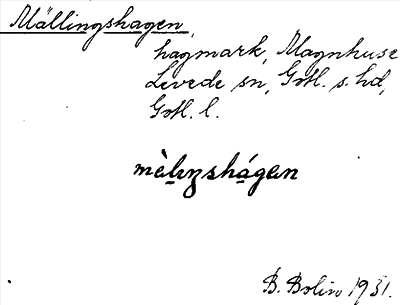 Mällingshagen,
hagmark, Magnhuse
Levede sn, Gotl. s. hd,
Gotl. l.
B. Bolin 1931.